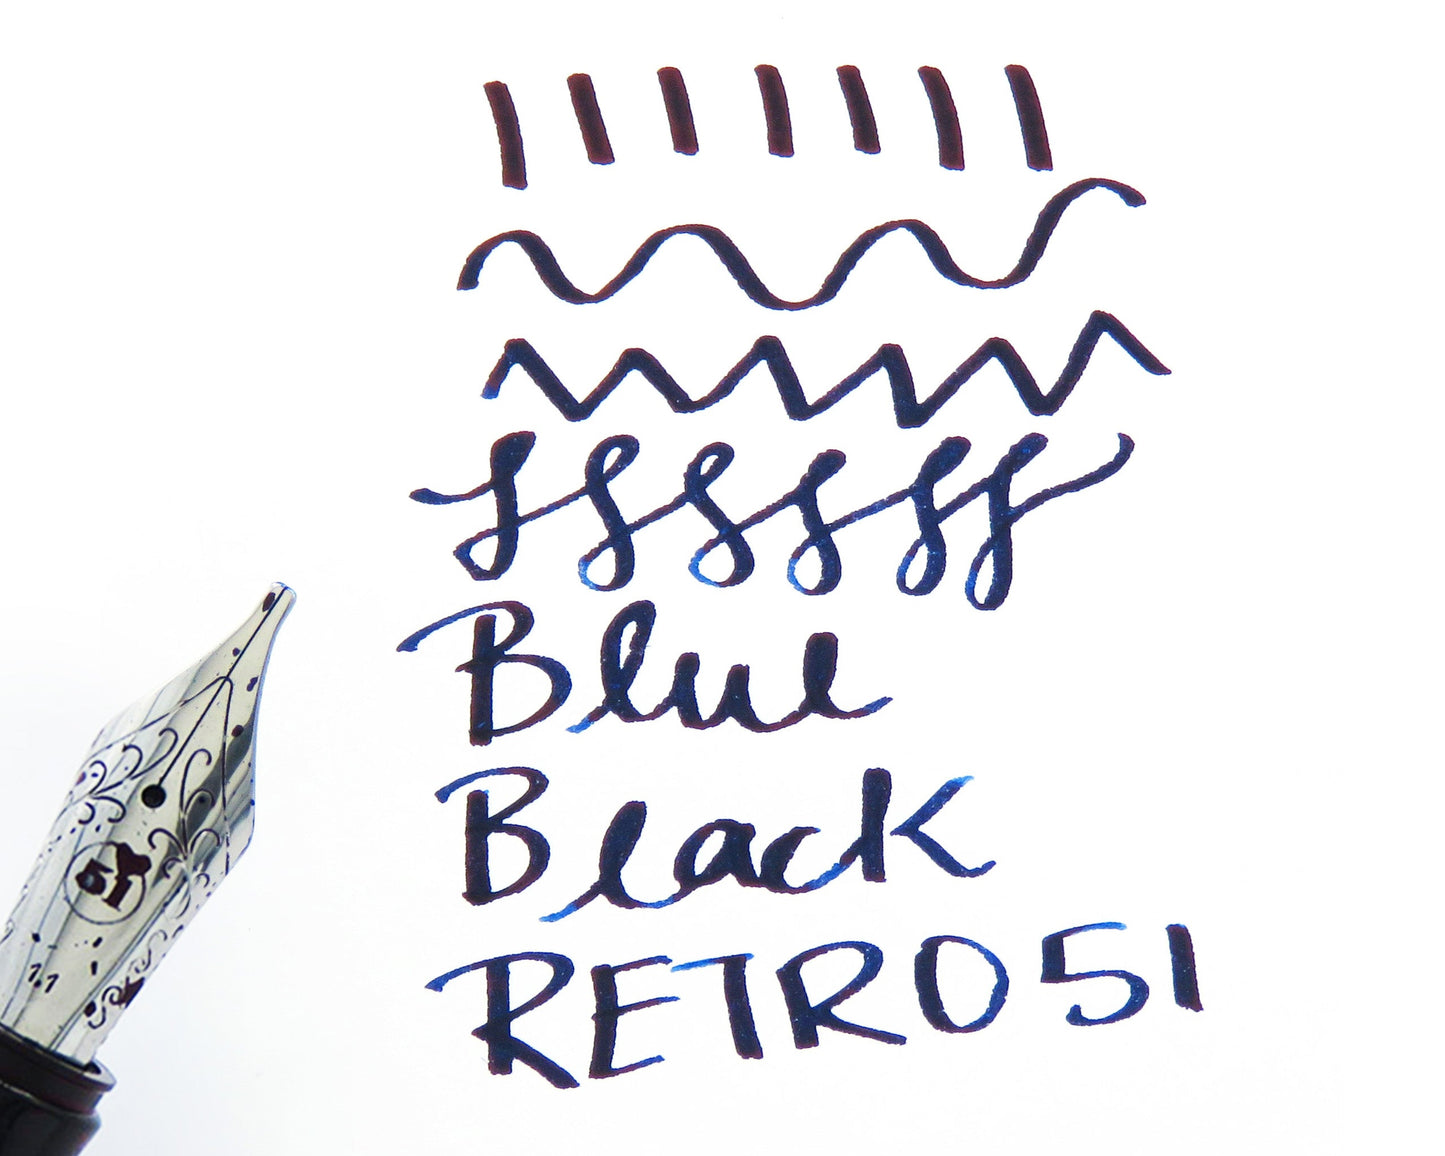 Blue
Black
RETRO 51
51
1.1